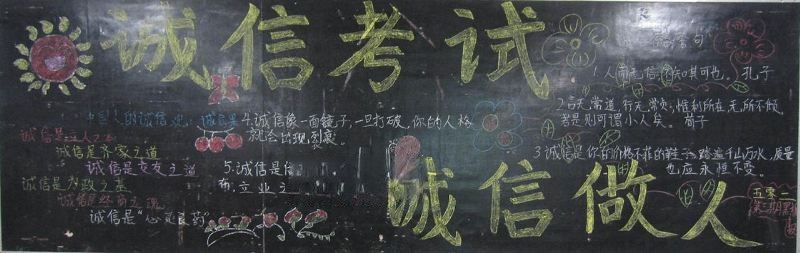 诚信考试
诚信做人
诚信是立人之
诚信是齐家之道
诚信是交友之道
诚信是为政之基
诚信是经商之魂
诚信是“心灵良药”
4.诚信像一面镜子,一旦打破,你的人格
就会出现裂裹。
5.诚信是
立业之
1.人而无信,不知其可也。孔子
2.言无常道,行无常贞,惟利所在,无所不倾,
若是则可谓小人矣。荀子
3.诚信是你的价格不菲的鞋子,踏遍千山万水,质量
也应永恒不变。